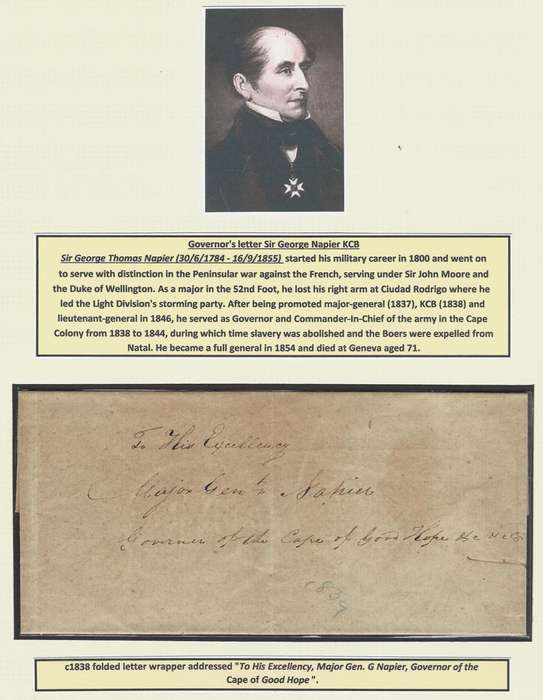 Governor's letter Sir George Napier KCB
Sir George Thomas Napier (30/6/1784 - 16/9/1855) started his military career in 1800 and went on
to serve with distinction in the Peninsular war against the French, serving under Sir John Moore and
the Duke of Wellington. As a major in the 52nd Foot, he lost his right arm at Ciudad Rodrigo where he
led the Light Division's storming party. After being promoted major-general (1837), KCB (1838) and
lieutenant-general in 1846, he served as Governor and Commander-In-Chief of the army in the Cape
Colony from 1838 to 1844, during which time slavery was abolished and the Boers were expelled from
Natal. He became a full general in 1854 and died at Geneva aged 71.
To His Excellency
Major Genl Napier
Governor of the Cape of Good Hope &c &c &c
c1838 folded letter wrapper addressed "To His Excellency, Major Gen. G Napier, Governor of the
Cape of Good Hope".